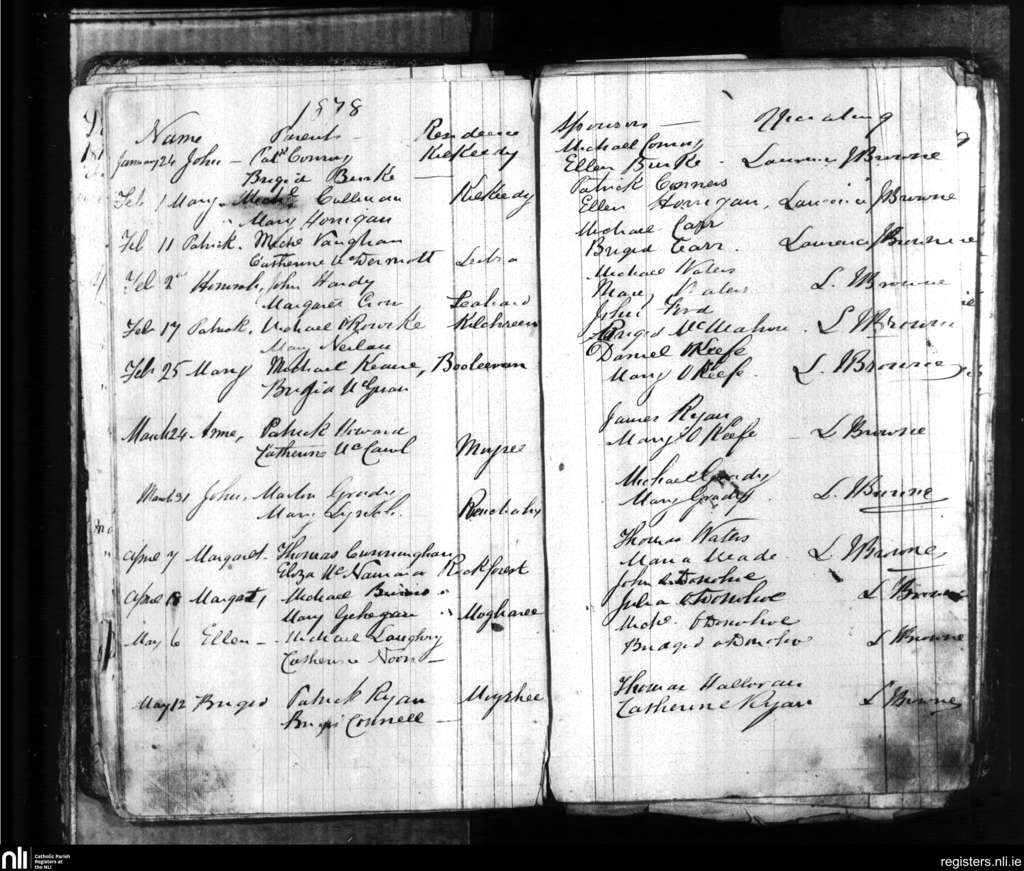 1878
Name Parents Residence
January 24 John - Patk Conroy Kilkeedy
Brigid Burke
Feb 1 Mary Michl Cullinan Kilkeedy
" Mary Horrigan
Feb 11 Patrick. Michl Vaughan
Catherine McDermott
Feb 2 John Hardy
Margaret Crow
Feb 17 Patrick, Michael O'Rourke
Mary Neilan
Feb 25 Mary Michael Keane, Booleevan
Brigid
March 24 Anne, Patrick Howard
Catherine
March 31 John, Martin Grady
Mary Lynch
April 7 Margaret. Thomas Cunningham
Eliza McNamara Rockforest
April Margaret, Michael
Mary Gehegan "
May 6 Ellen - Michael Laughry
Catherine Noon -
May 12 Briged Patrick Ryan -
Connell -
Sponsors -
Michael Conroy
Ellen Burke - Laurence J Browne
Patrick Conners
Ellen Horrigan, Laurence J Browne
Michael Carr
Briged Carr. Laurence J Browne
Michael Waters
Waters L. J Browne
John Ford
Briged McMahon. L J Browne
Daniel O'Keefe
Mary O Keefe. L. J Browne
James Ryan
Mary O Keefe - L Browne
Michael Grady
Mary Grady. L. J Browne
Thomas Waters
Maria Meade. L. J Browne,
John O'Donohoe
Julia O'Donohoe L Browne
Michl O'Donohoe
Bridged O'Donohoe L J Browne
Thomas Halloran
Catherine Ryan L Browne
nli
Catholic Parish
Registers at
the NLI
registers.nli.ie